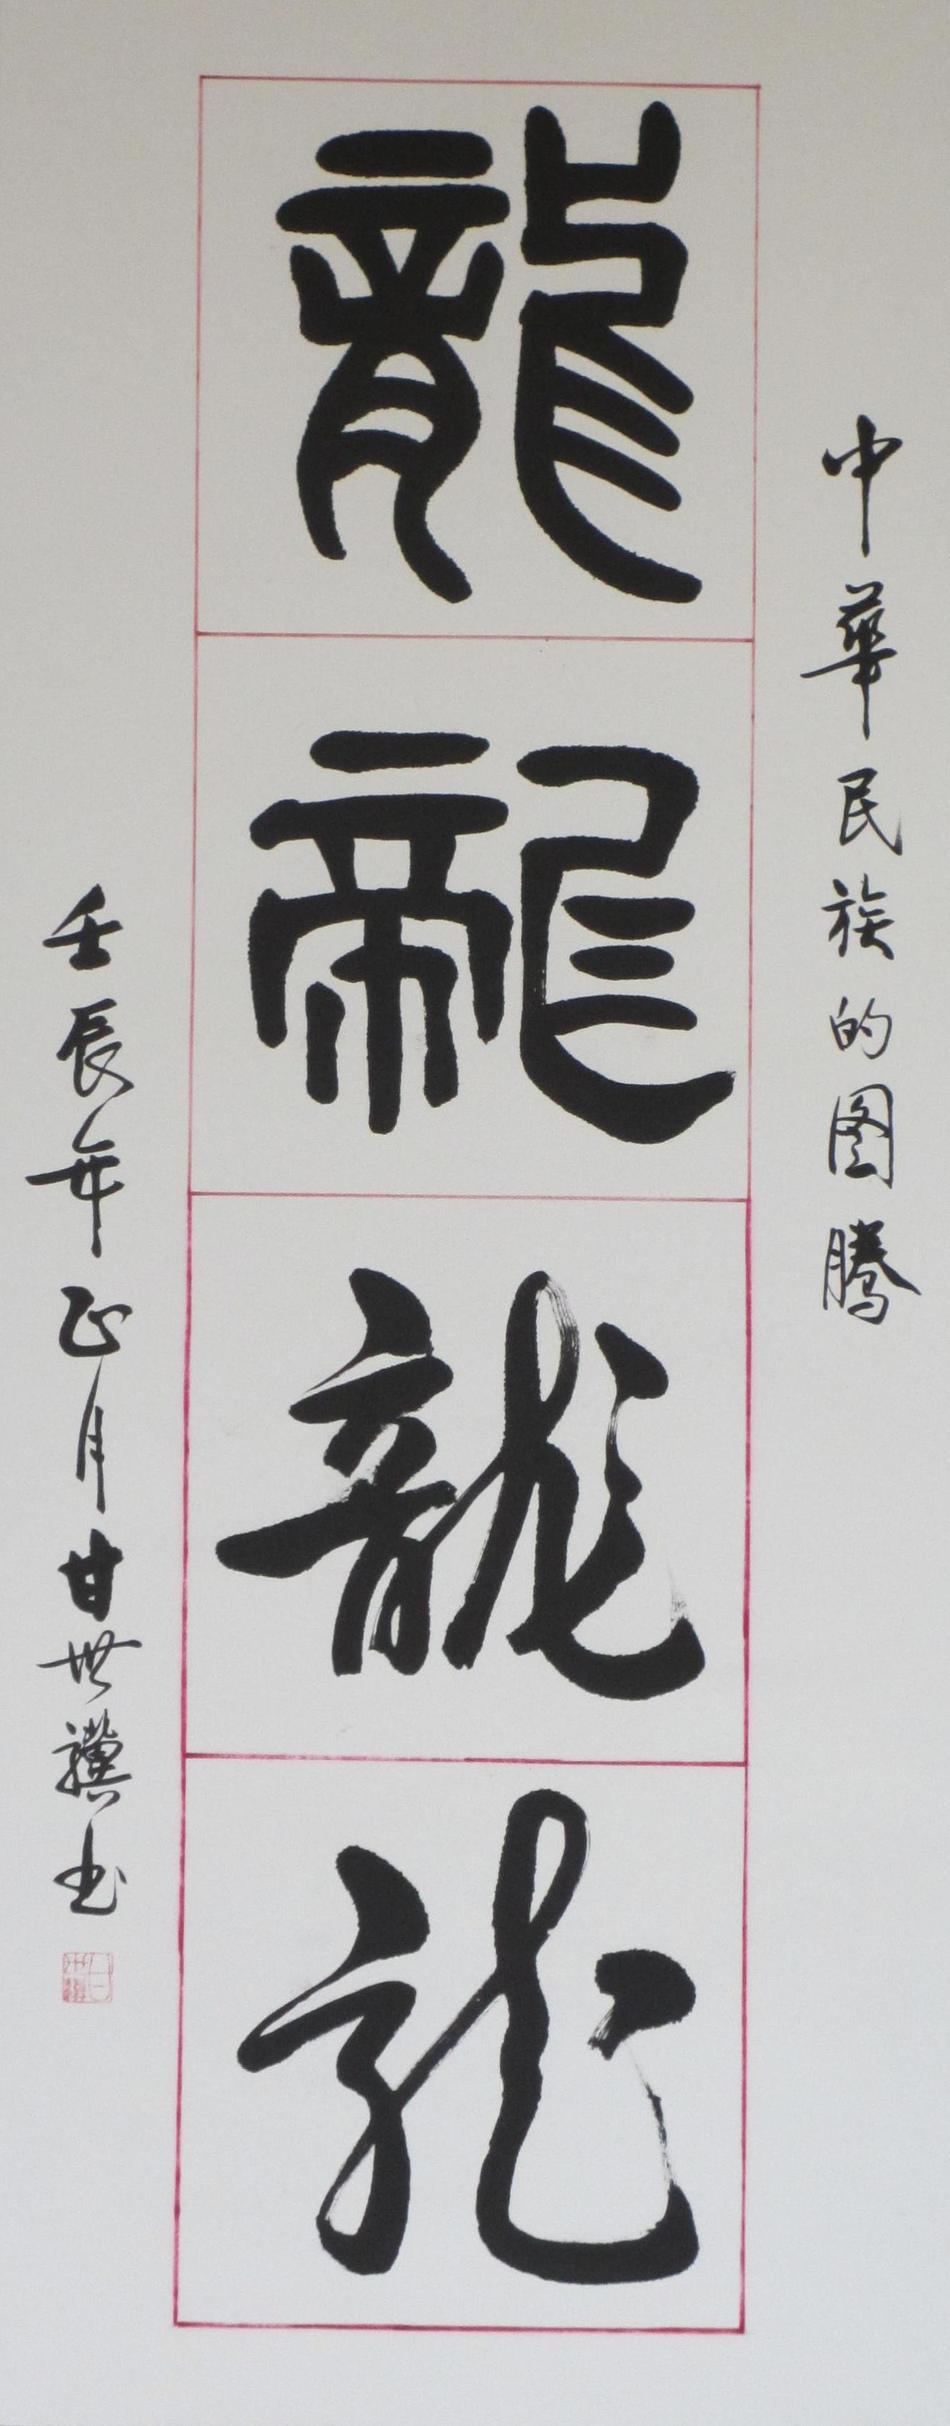 中華民族的图騰
龍
龍
龍
龍
壬辰年正月甘世驥书